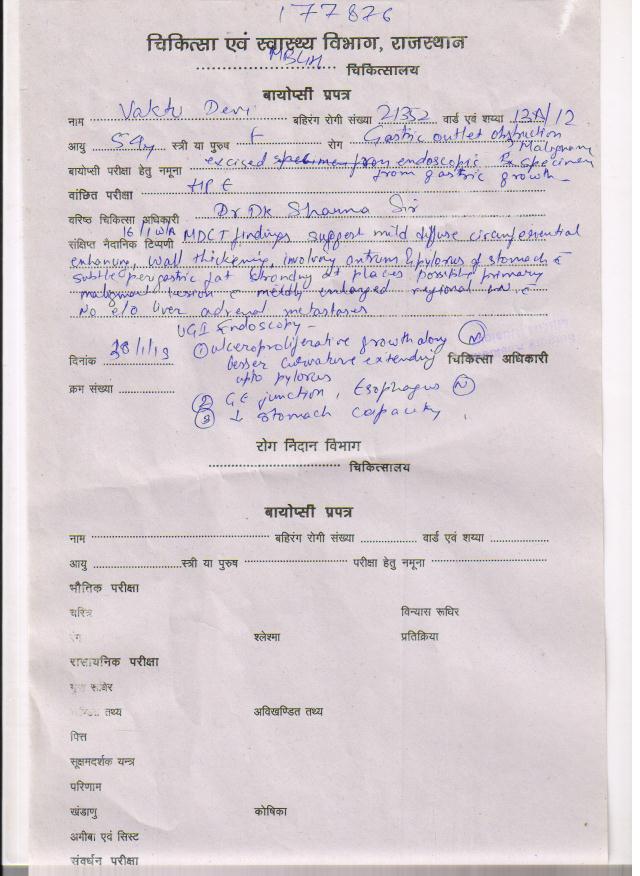 177826
चिकित्सा एवं स्वास्थ्य विभाग, राजस्थान
MBGH चिकित्सालय
बायोप्सी प्रपत्र
नाम Vaktu Devi बहिरंग रोगी संख्या 21352 वार्ड एवं शय्या 12A/12
आयु 59y स्त्री या पुरुष F रोग Gastric outlet obstruction
Malignancy
बायोप्सी परीक्षा हेतु नमूना excised specimen from endoscopic Bx specimen
from gastric growth
वांछित परीक्षा HPE
वरिष्ठ चिकित्सा अधिकारी Dr DK Sharma Sir
संक्षिप्त नैदानिक टिप्पणी MDCT findings suggest mild diffuse circumferential
enhancing wall thickening, involving antrum & pylorus of stomach c̄
subtle perigastric fat stranding at places possibly primary
malignant lesion c̄ mildly enlarged regional LN c̄
No e/o liver adrenal metastases
UGI Endoscopy -
① ulceroproliferative growth along
lesser curvature extending
upto pylorus
दिनांक 28/1/19 चिकित्सा अधिकारी
क्रम संख्या
② GE junction, Esophagus Ⓝ
③ ↓ stomach capacity
रोग निदान विभाग
चिकित्सालय
बायोप्सी प्रपत्र
नाम बहिरंग रोगी संख्या वार्ड एवं शय्या
आयु स्त्री या पुरुष परीक्षा हेतु नमूना
भौतिक परीक्षा
चरित्र विन्यास रूधिर
रंग श्लेश्मा प्रतिक्रिया
रासायनिक परीक्षा
रूधिर
तथ्य अविखण्डित तथ्य
पित्त
सूक्ष्मदर्शक यन्त्र
परिणाम
खंडाणु कोषिका
अमीबा एवं सिस्ट
संवर्धन परीक्षा